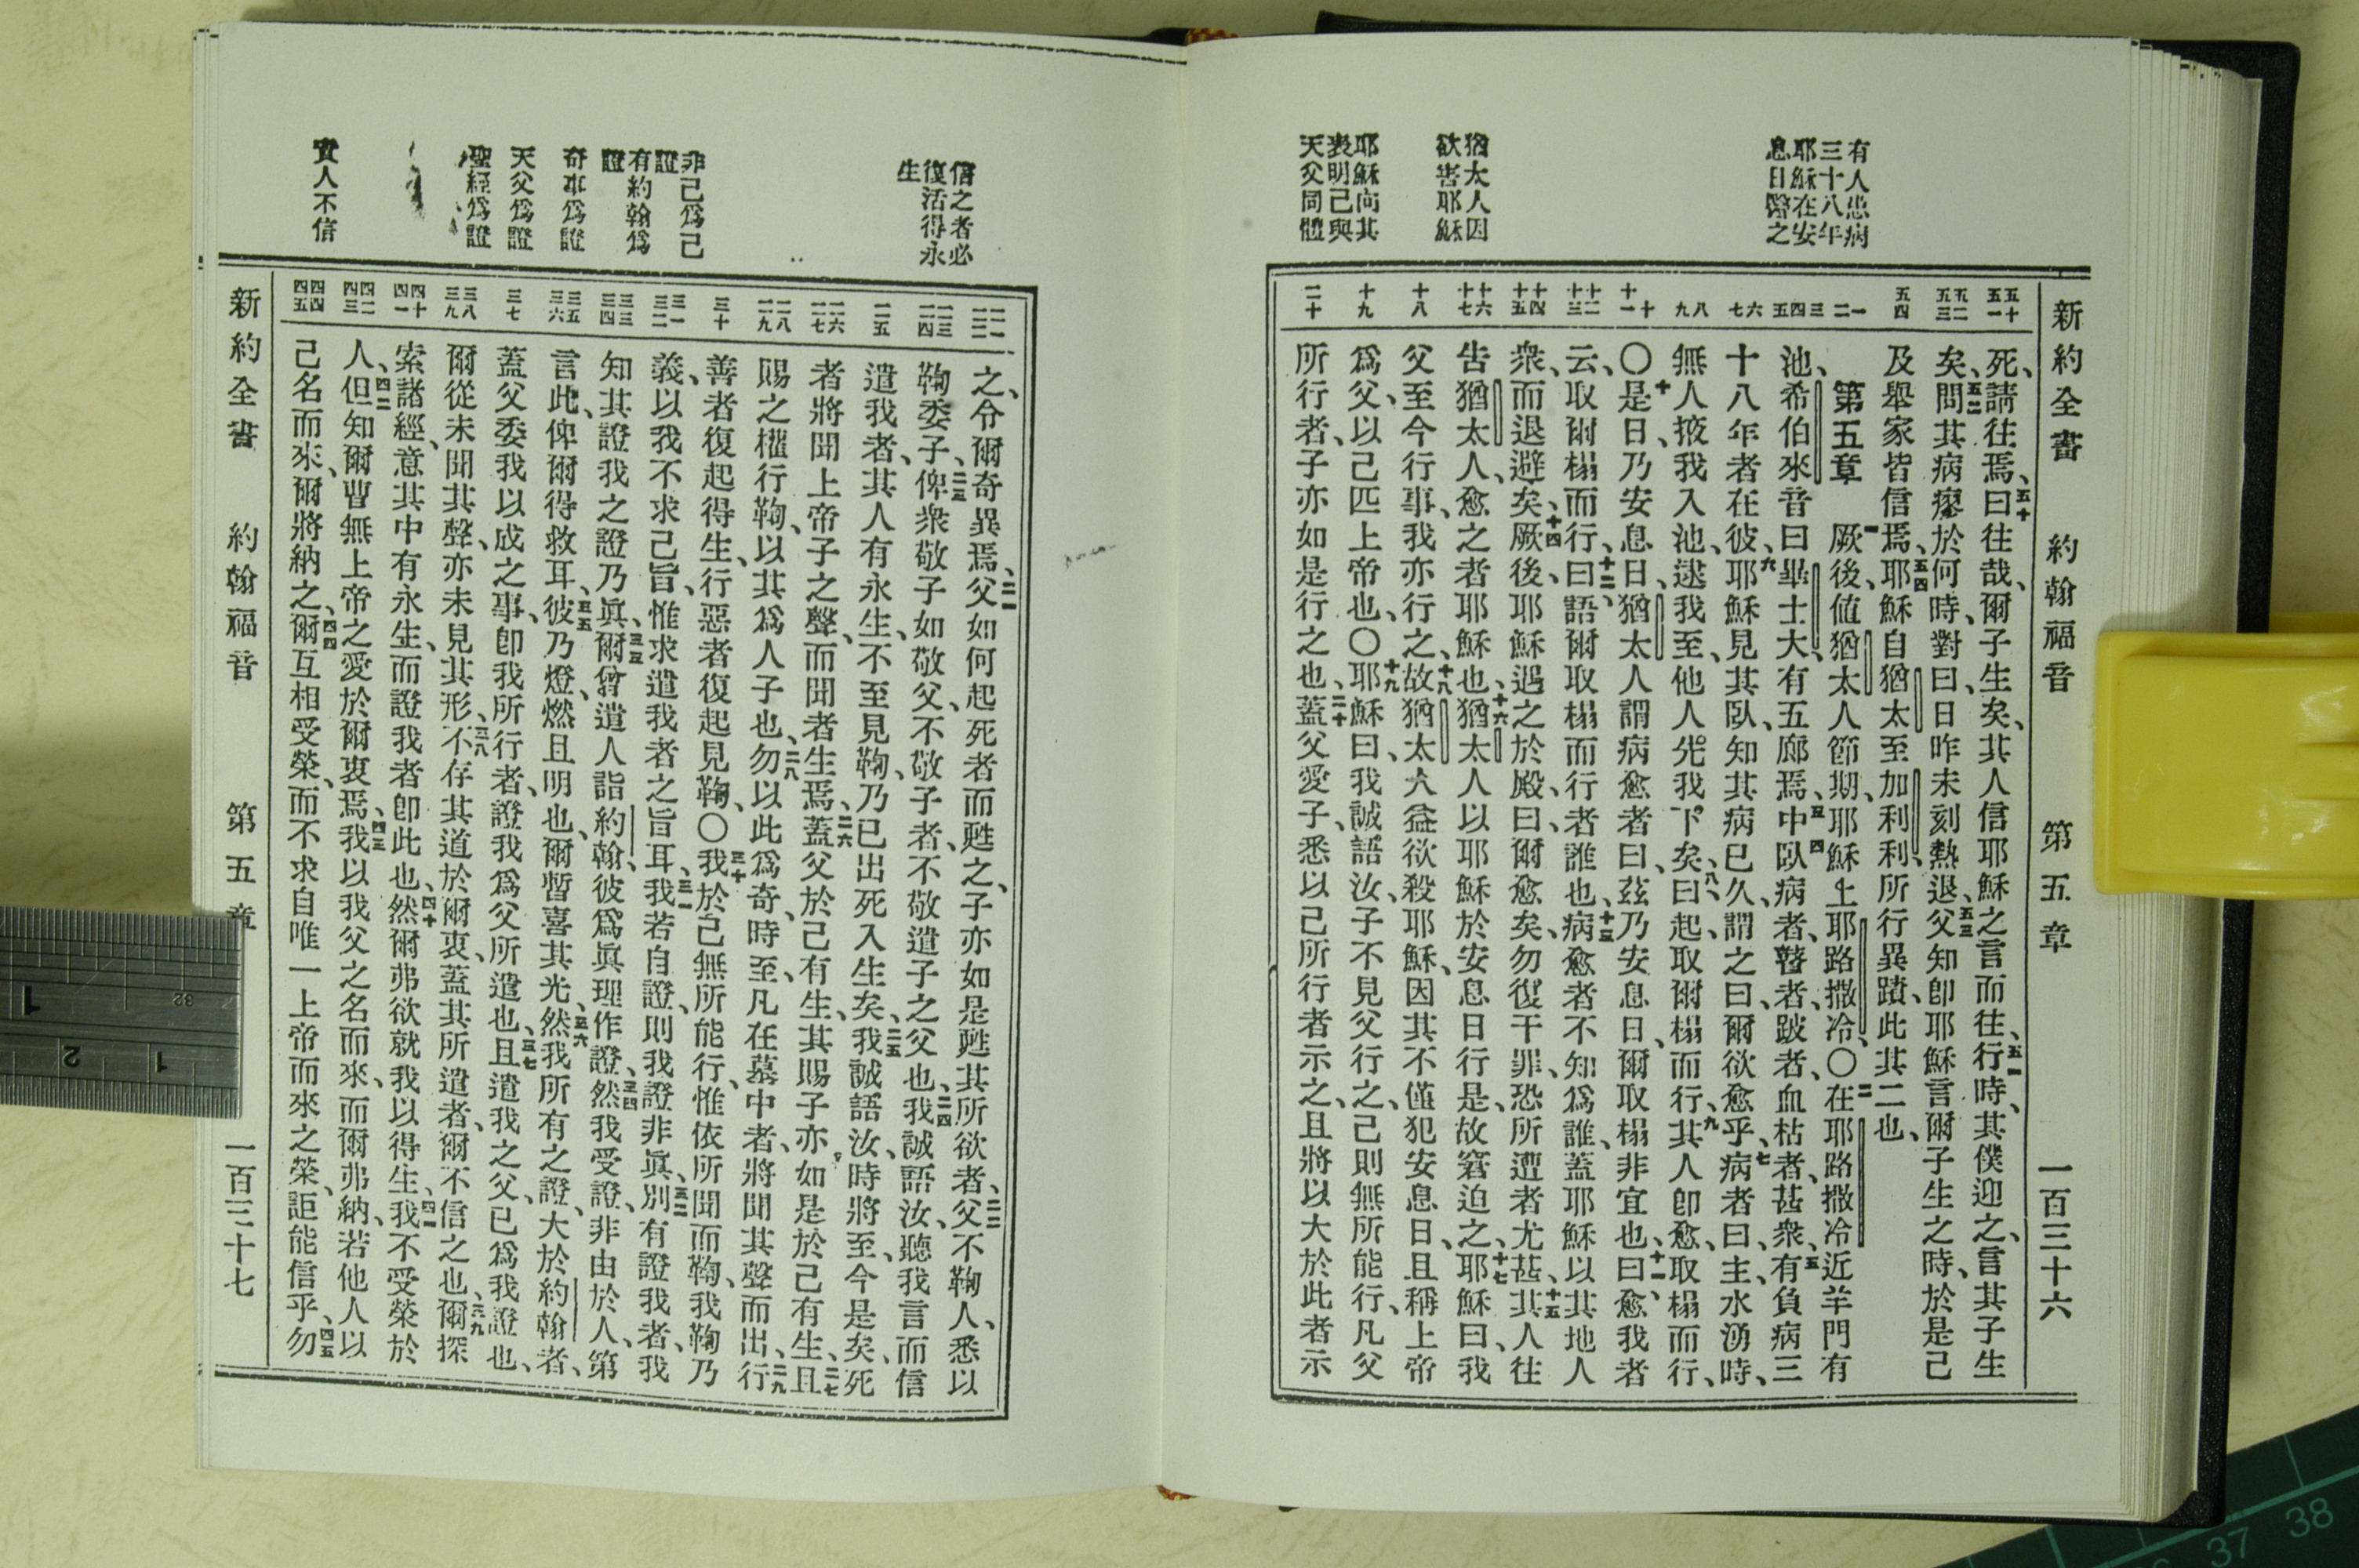 新約全書 約翰福音 第五章 一百三十六
有人患病
三十八年
耶穌在安
息日醫之
猶太人因
欲害耶穌
耶穌向其
表明己與
天父同體
五十 五一
五二 五三
五四
一 二
三 四 五
六 七
八 九
十 十一
十二 十三
十四 十五
十六 十七
十八
十九
二十
死、請往焉、五十曰往哉、爾子生矣、其人信耶穌之言而往、五一行時、其僕迎之、言其子生
矣、五二問其病瘳於何時、對曰、日昨未刻熱退、五三父知卽耶穌言爾子生之時、於是己
及舉家皆信焉、五四耶穌自猶太至加利利、所行異蹟、此其二也、
第五章 一厥後、值猶太人節期、耶穌上耶路撒冷、〇二在耶路撒冷近羊門有
池、希伯來音曰畢士大、有五廊焉、三中臥病者、四瞽者、跛者、血枯者、甚衆、五有負病三
十八年者在彼、六耶穌見其臥、知其病已久、謂之曰、爾欲愈乎、七病者曰、主、水湧時、
無人掖我入池、逮我至、他人先我下矣、八曰、起、取爾榻而行、九其人卽愈、取榻而行、
〇是日、十乃安息日、猶太人謂病愈者曰、茲乃安息日、爾取榻非宜也、十一曰、愈我者
云、取爾榻而行、十二曰、語爾取榻而行者誰也、十三病愈者不知爲誰、蓋耶穌以其地人
衆、而退避矣、十四厥後、耶穌遇之於殿、曰、爾愈矣、勿復干罪、恐所遭者尤甚、十五其人往
告猶太人、愈之者耶穌也、十六猶太人以耶穌於安息日行是、故窘迫之、十七耶穌曰、我
父至今行事、我亦行之、十八故猶太人益欲殺耶穌、因其不僅犯安息日、且稱上帝
爲父、以己匹上帝也、〇十九耶穌曰、我誠語汝、子不見父行之、己則無所能行、凡父
所行者、子亦如是行之也、二十蓋父愛子、悉以己所行者示之、且將以大於此者示
新約全書 約翰福音 第五章 一百三十七
信之者必
復活得永
生
非己爲己
證
有約翰爲
證
奇事爲證
天父爲證
聖經爲證
實人不信
二一 二二
二三 二四
二五
二六 二七
二八 二九
三十
三一 三二
三三 三四
三五 三六
三七
三八 三九
四十 四一
四二 四三
四四 四五
之、令爾奇異焉、二一父如何起死者而甦之、子亦如是甦其所欲者、二二父不鞫人、悉以
鞫委子、二三俾衆敬子如敬父、不敬子者、不敬遣子之父也、二四我誠語汝、聽我言而信
遣我者、其人有永生、不至見鞫、乃已出死入生矣、二五我誠語汝、時將至、今是矣、死
者將聞上帝子之聲、而聞者生焉、二六蓋父於己有生、其賜子亦如是於己有生、二七且
賜之權行鞫、以其爲人子也、二八勿以此爲奇、時至、凡在墓中者、將聞其聲而出、二九行
善者復起得生、行惡者復起見鞫、〇三十我於己無所能行、惟依所聞而鞫、我鞫乃
義、以我不求己旨、惟求遣我者之旨耳、三一我若自證、則我證非眞、三二別有證我者、我
知其證我之證乃眞、三三爾曾遣人詣約翰、彼爲眞理作證、三四然我受證、非由於人、第
言此、俾爾得救耳、三五彼乃燈、燃且明也、爾暫喜其光、三六然我所有之證、大於約翰者、
蓋父委我以成之事、卽我所行者、證我爲父所遣也、三七且遣我之父、已爲我證也、
爾從未聞其聲、亦未見其形、三八不存其道於爾衷、蓋其所遣者、爾不信之也、三九爾探
索諸經、意其中有永生、而證我者卽此也、四十然爾弗欲就我以得生、四一我不受榮於
人、四二但知爾曹無上帝之愛於爾衷焉、四三我以我父之名而來、而爾弗納、若他人以
己名而來、爾將納之、四四爾互相受榮、而不求自唯一上帝而來之榮、詎能信乎、四五勿
1
2
1
32
37 38